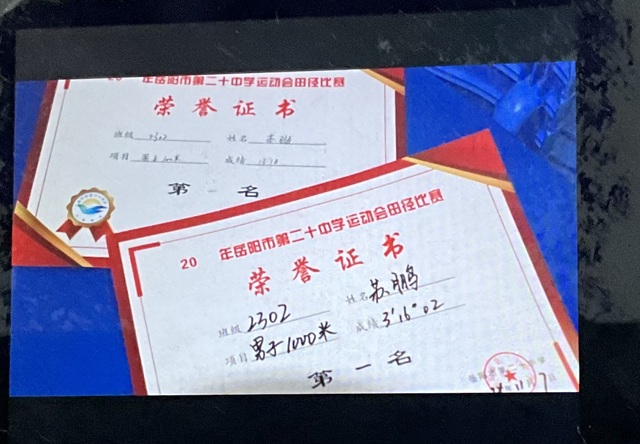 年岳阳市第二十中学运动会田径比赛
荣誉证书
班级 2302 姓名 苏鹏
项目 成绩
第一名
20 年岳阳市第二十中学运动会田径比赛
荣誉证书
班级 2302 姓名 苏鹏
项目 男子1000米 成绩 3'16"02
第一名